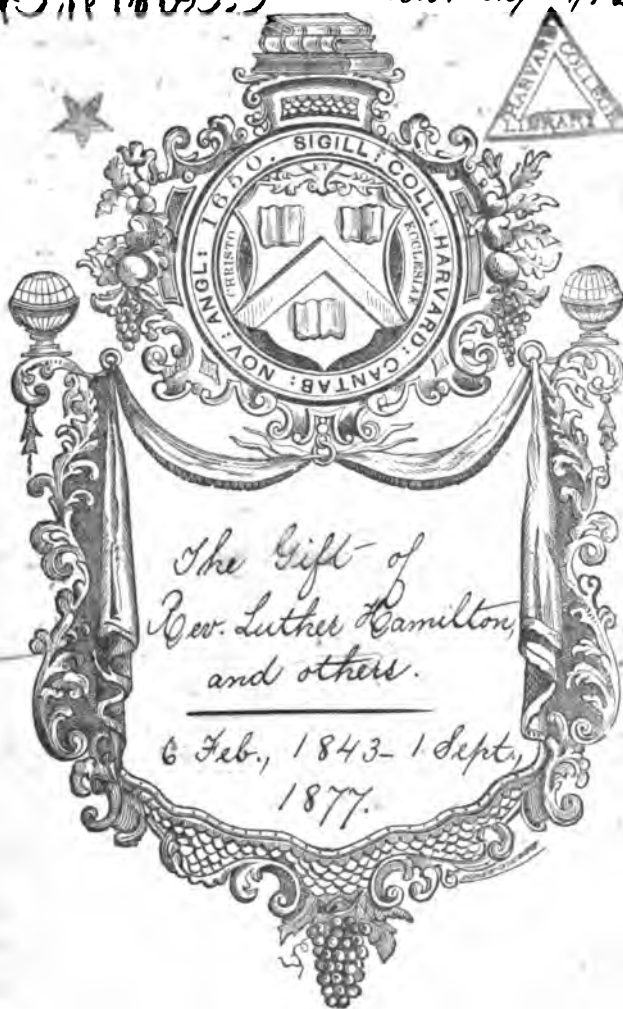 HARVARD COLLEGE
LIBRARY
SIGILL: COLL: HARVARD: CANTAB: NOV: ANGL: 1650.
CHRISTO
ET
ECCLESIAE
The Gift of
Rev. Luther Hamilton,
and others.
6 Feb., 1843 - 1 Sept.,
1877.